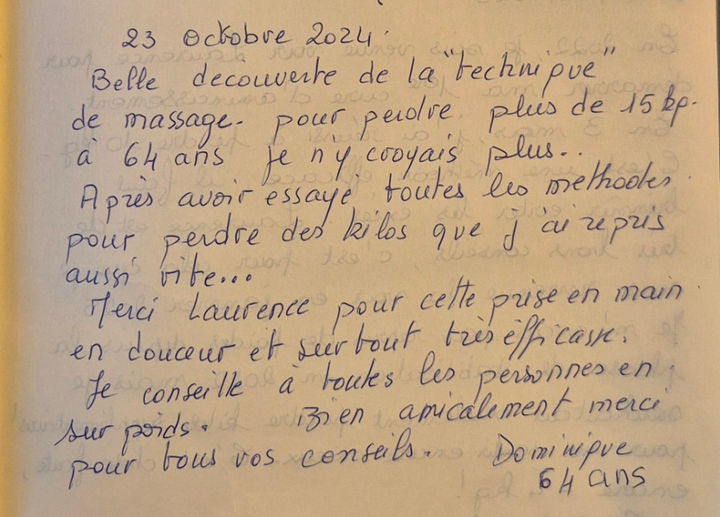 23 octobre 2024.
Belle decouverte de la "technique"
de massage. pour perdre plus de 15 kg.
à 64 ans je n'y croyais plus..
Après avoir essayé toutes les methodes
pour perdre des kilos que j'ai repris
aussi vite...
Merci Laurence pour cette prise en main
en douceur et surtout très éfficase.
Je conseille à toutes les personnes en
sur poids. Bien amicalement merci
pour tous vos conseils. Dominique
64 ans